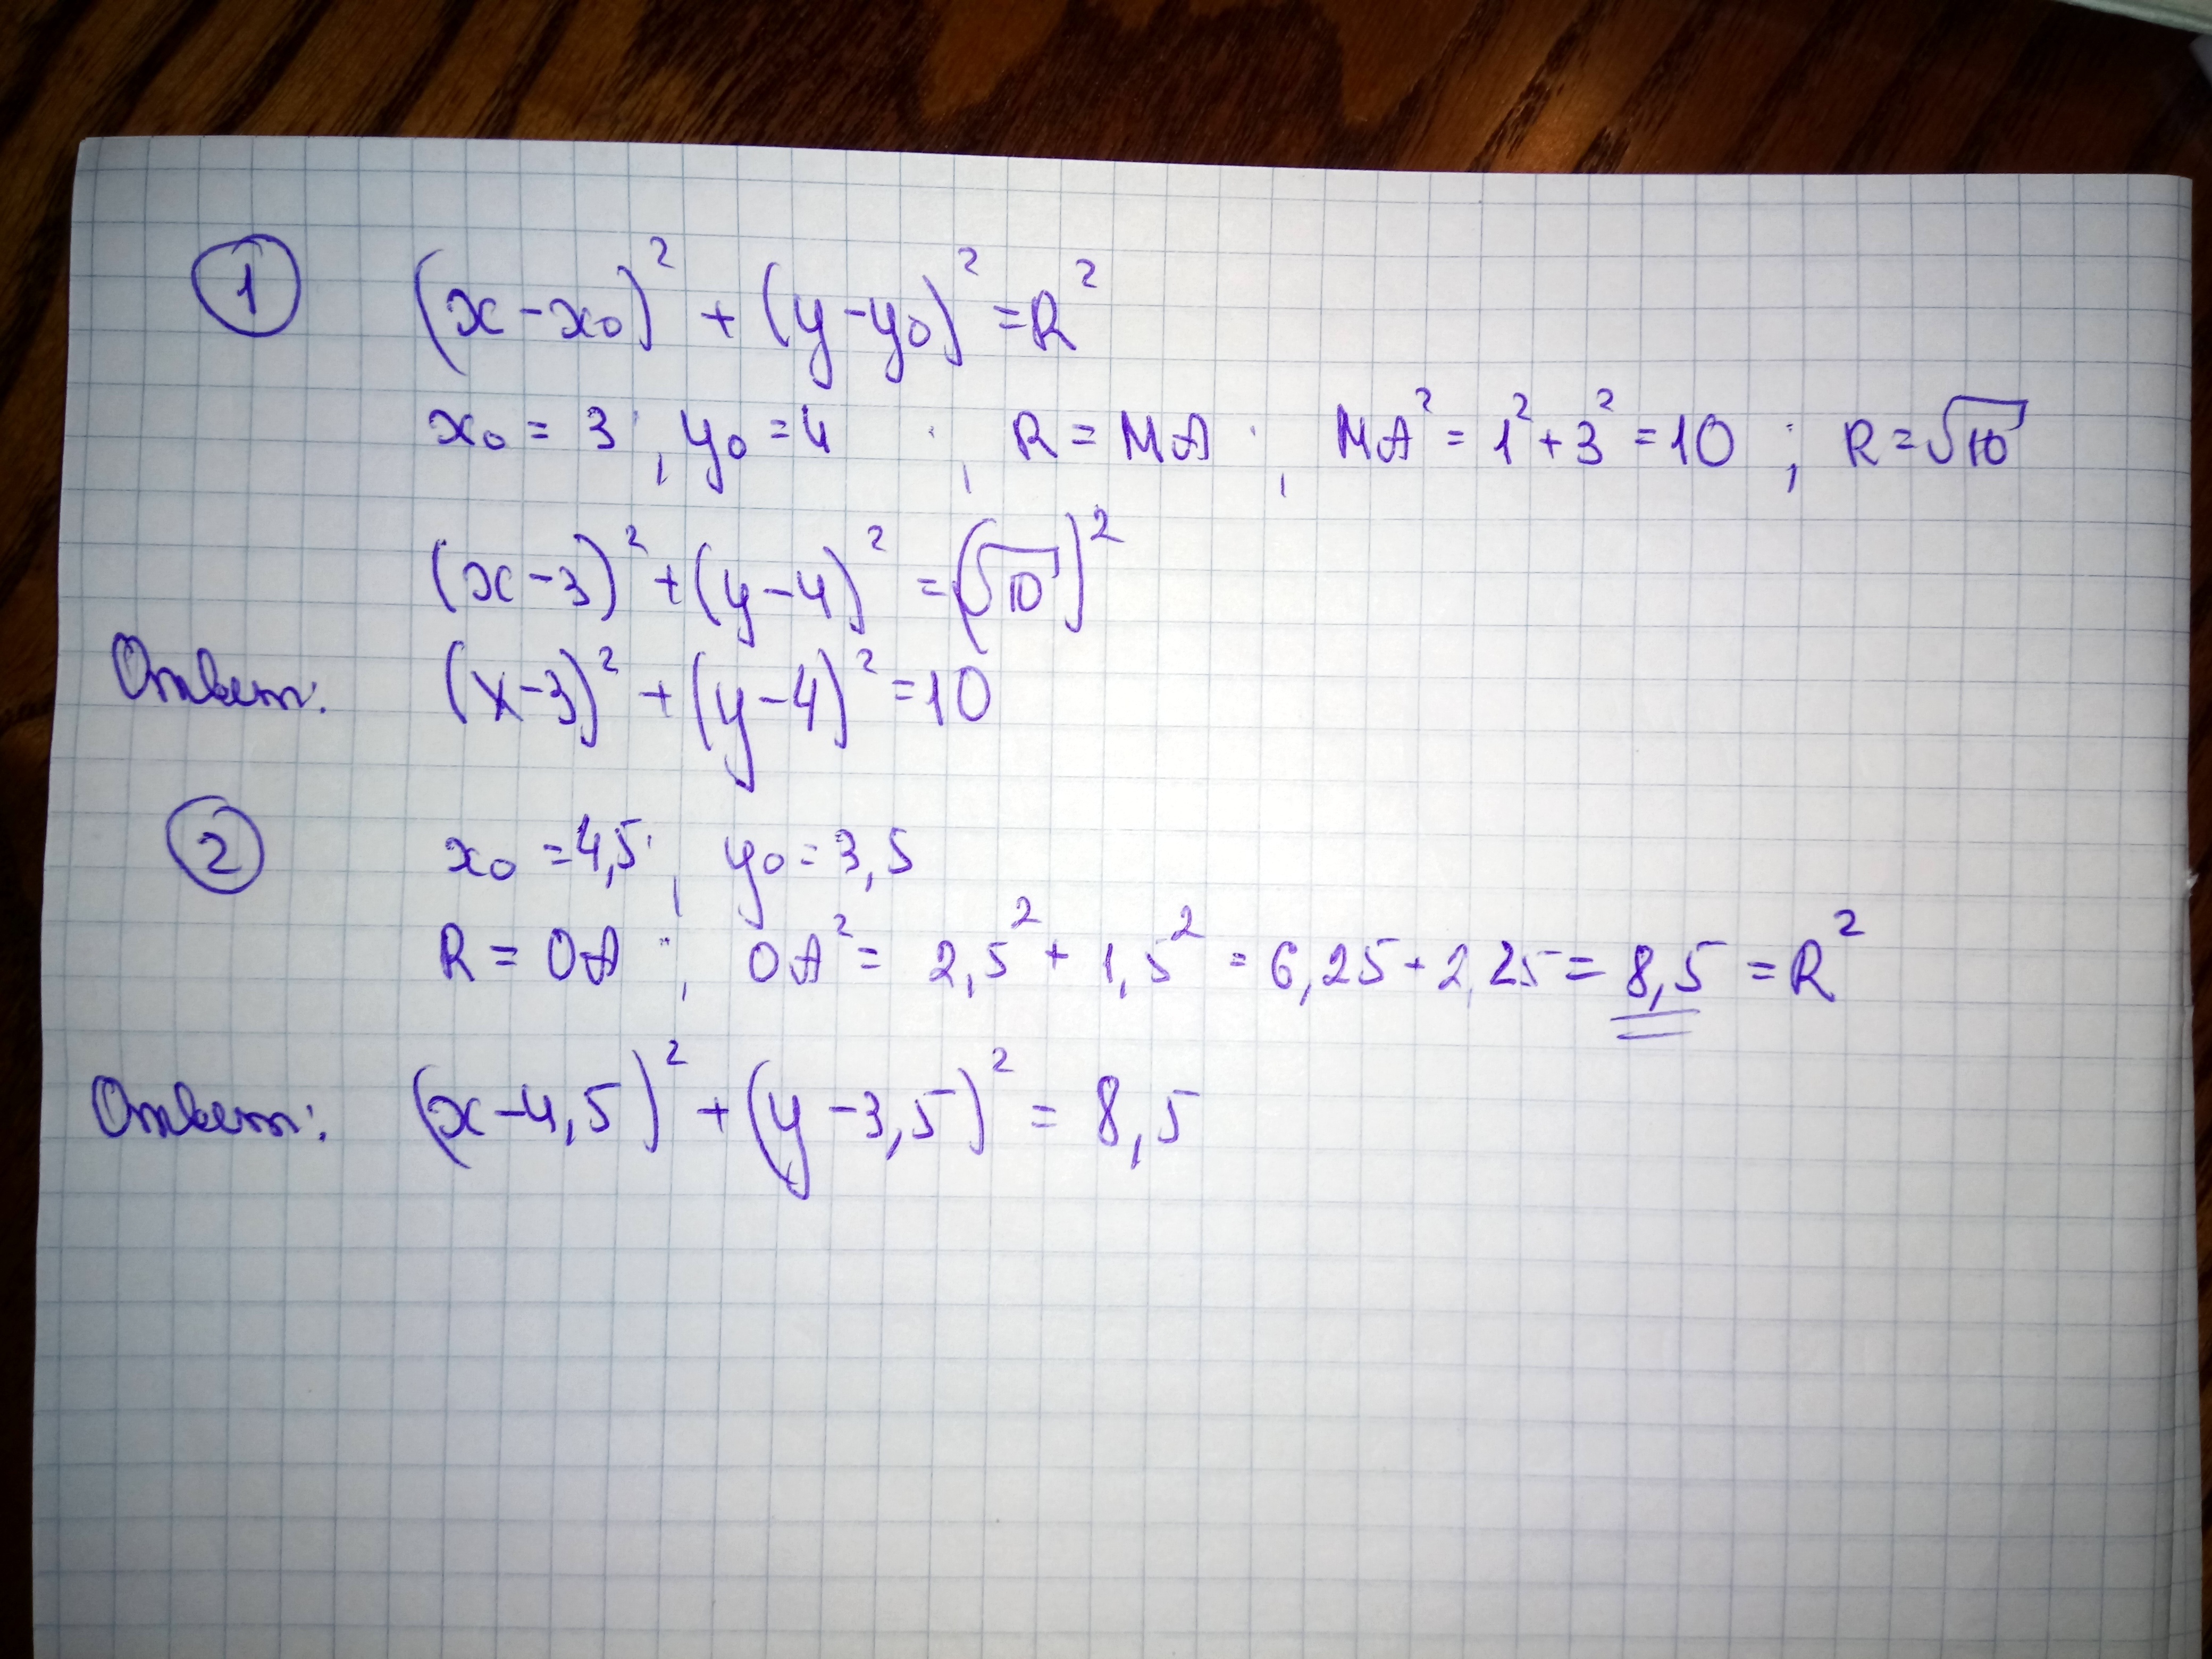 ① (x-x₀)² + (y-y₀)² = R²
x₀ = 3 ; y₀ = 4 ; R = MA ; MA² = 1² + 3² = 10 ; R = √10
(x-3)² + (y-4)² = (√10)²
Ответ: (x-3)² + (y-4)² = 10
② x₀ = 4,5 ; y₀ = 3,5
R = OA ; OA² = 2,5² + 1,5² = 6,25 + 2,25 = 8,5 = R²
Ответ: (x-4,5)² + (y-3,5)² = 8,5